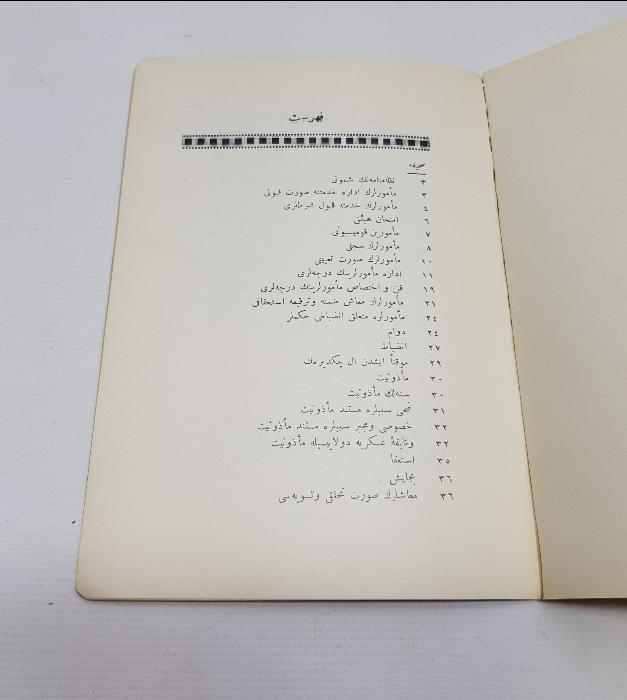 فهرست
صحيفه
٣ نظامنامه‌نك شمولى
٣ مأمورلرك اداره خدمتنه صورت قبولى
٤ مأمورلرك خدمته قبول شرطلرى
٦ امتحان هيئتى
٧ مأمورين قوميسيونى
٨ مأمورلرك سجلى
١٠ مأمورلرك صورت تعيينى
١١ اداره مأمورلرينك درجه‌لرى
١٩ فن و اختصاص مأمورلرينك درجه‌لرى
٢١ مأمورلرك معاش ضمنه وترفيعه استحقاقى
٢٤ مأمورلره متعلق انضباطى حكملر
٢٤ دوام
٢٧ انضباط
٢٩ موقتاً ايشدن ال چكديرمك
٣٠ مأذونيت
٣٠ سنه‌لك مأذونيت
٣١ صحى سببلره مستند مأذونيت
٣٢ خصوصى ومجبر سببلره مستند مأذونيت
٣٢ وظيفۀ عسكريه دولاييسيله مأذونيت
٣٥ استعفا
٣٦ بجايش
٣٦ معاشلرك صورت تحققى وتسويه‌سى